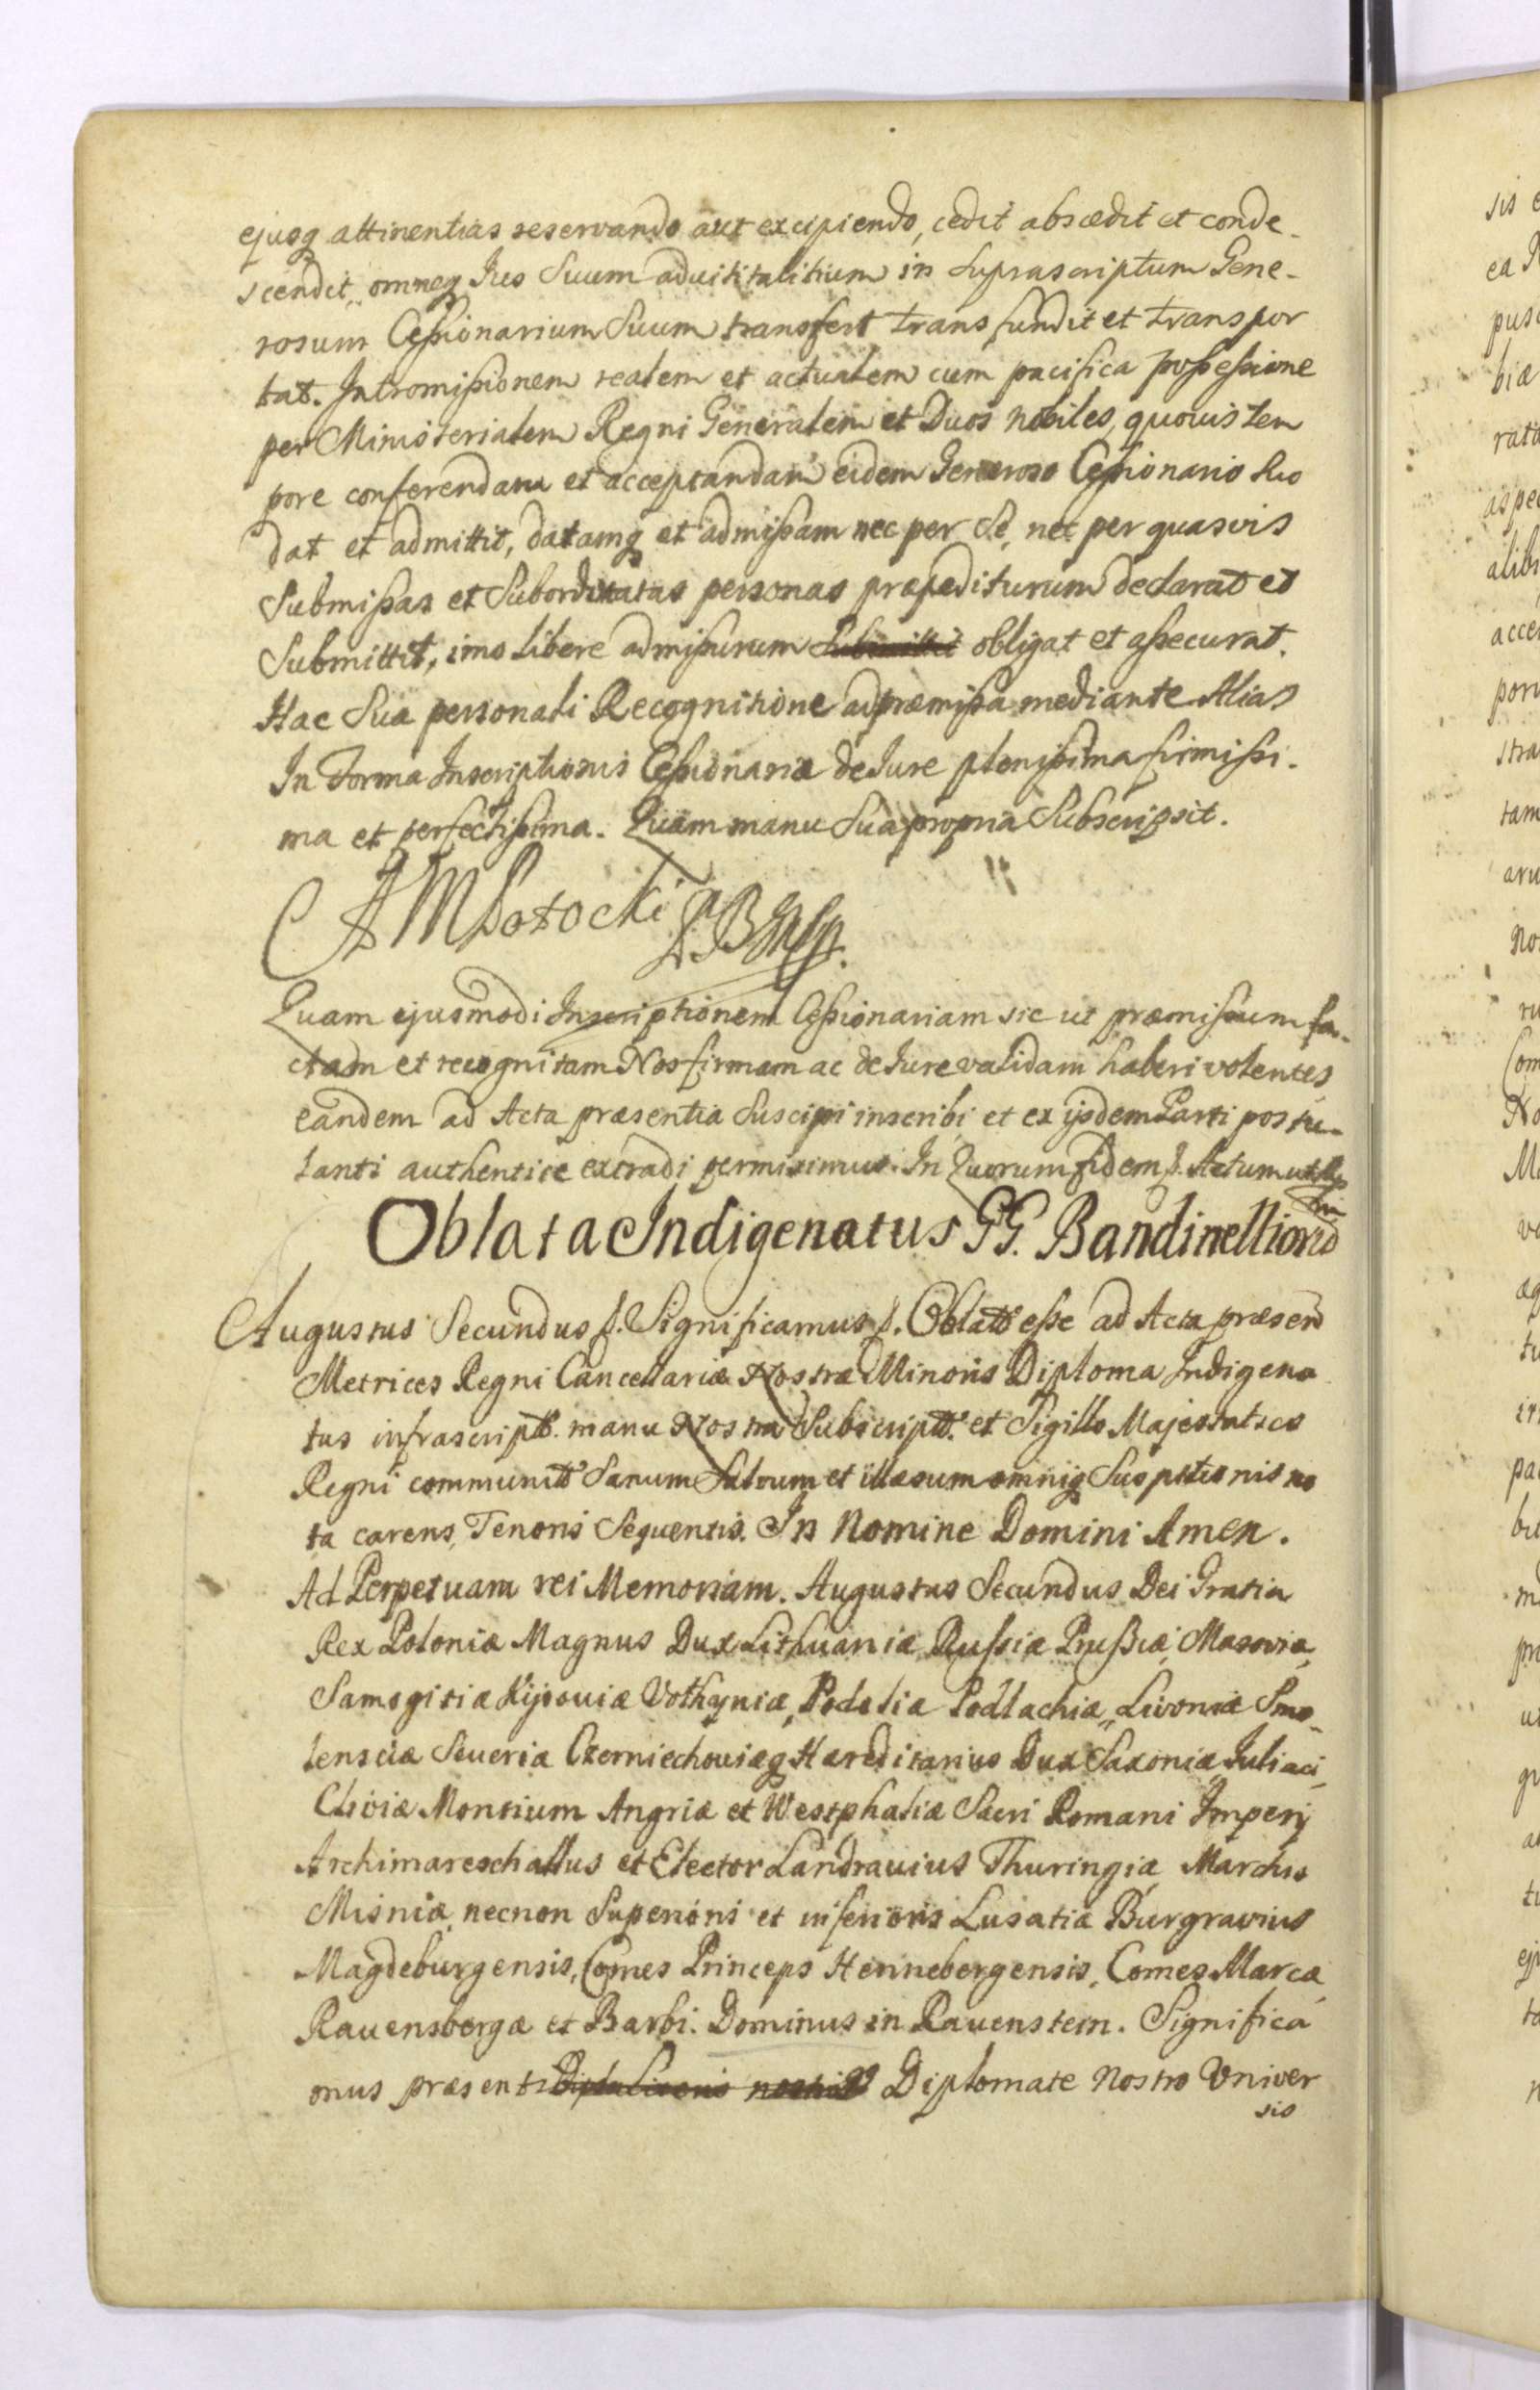 ejusq attinentias reservando aut excipiendo, cedit abscedit et conde-
scendit, omneq Jus Suum advititalitium in Suprascriptum Gene-
rosum Cessionarium Suum transfert transfundit et transpor
tat. Intromissionem realem et actualem cum pacifica possessione
per Ministerialem Regni Generalem et Duos nobiles, quovis tem
pore conferendam et acceptandam eidem Generoso Cessionario Suo
dat et admittit, datamq et admissam nec per Se, nec per quasvis
Submissas et Subordinatas personas præpediturum declarat et
Submittit, imo libere admissurum Submittit obligat et assecurat.
Hac Sua personali Recognitione ad præmissa mediante Alias
In Forma Inscriptionis Cessionariæ de Jure plenissima firmissi-
ma et perfectissima. Quam manu Sua propria Subscripsit.
Potocki
Quam ejusmodi Inscriptionem Cessionariam sic ut præmissum fa-
ctam et recognitam Nos firmam ac de Jure validam haberi volentes
eandem ad Acta præsentia Suscipi inscribi et ex ijsdem Parti postu-
lanti authentice extradi permisimus. In Quorum fidem p. Actum ut Sup
Oblata Indigenatus GG. Bandinelliorū
Augustus Secundus p. Significamus p. Oblatū esse ad Acta præsen
Metrices Regni Cancellariæ Nostræ Minoris Diploma Indigena
tus infrascriptū. manu Nostra Subscriptū. et Sigillo Majestatico
Regni communitū Sanum Salvum et illæsum omniq Suspitionis no
ta carens, Tenoris Sequentis. In Nomine Domini Amen.
Ad Perpetuam rei Memoriam. Augustus Secundus Dei Gratia
Rex Poloniæ Magnus Dux Lithuaniæ Russiæ Prussiæ, Masoviæ,
Samogitiæ Kijoviæ Volhyniæ, Podoliæ Podlachiæ, Livoniæ Smo-
lensciæ Severiæ Czerniechoviæq Hæreditarius Dux Saxoniæ Juliaci,
Cliviæ Montium Angriæ et Westphaliæ Sacri Romani Imperij
Archimareschallus et Elector Landravius Thuringiæ Marchio
Misniæ, necnon Superioris et inferioris Lusatiæ Burgravius
Magdeburgensis, Comes Princeps Hennebergensis, Comes Marcæ,
Ravensbergæ et Barbi. Dominus in Ravenstein. Significa
mus præsenti Diplomate Nostro Univer
sis